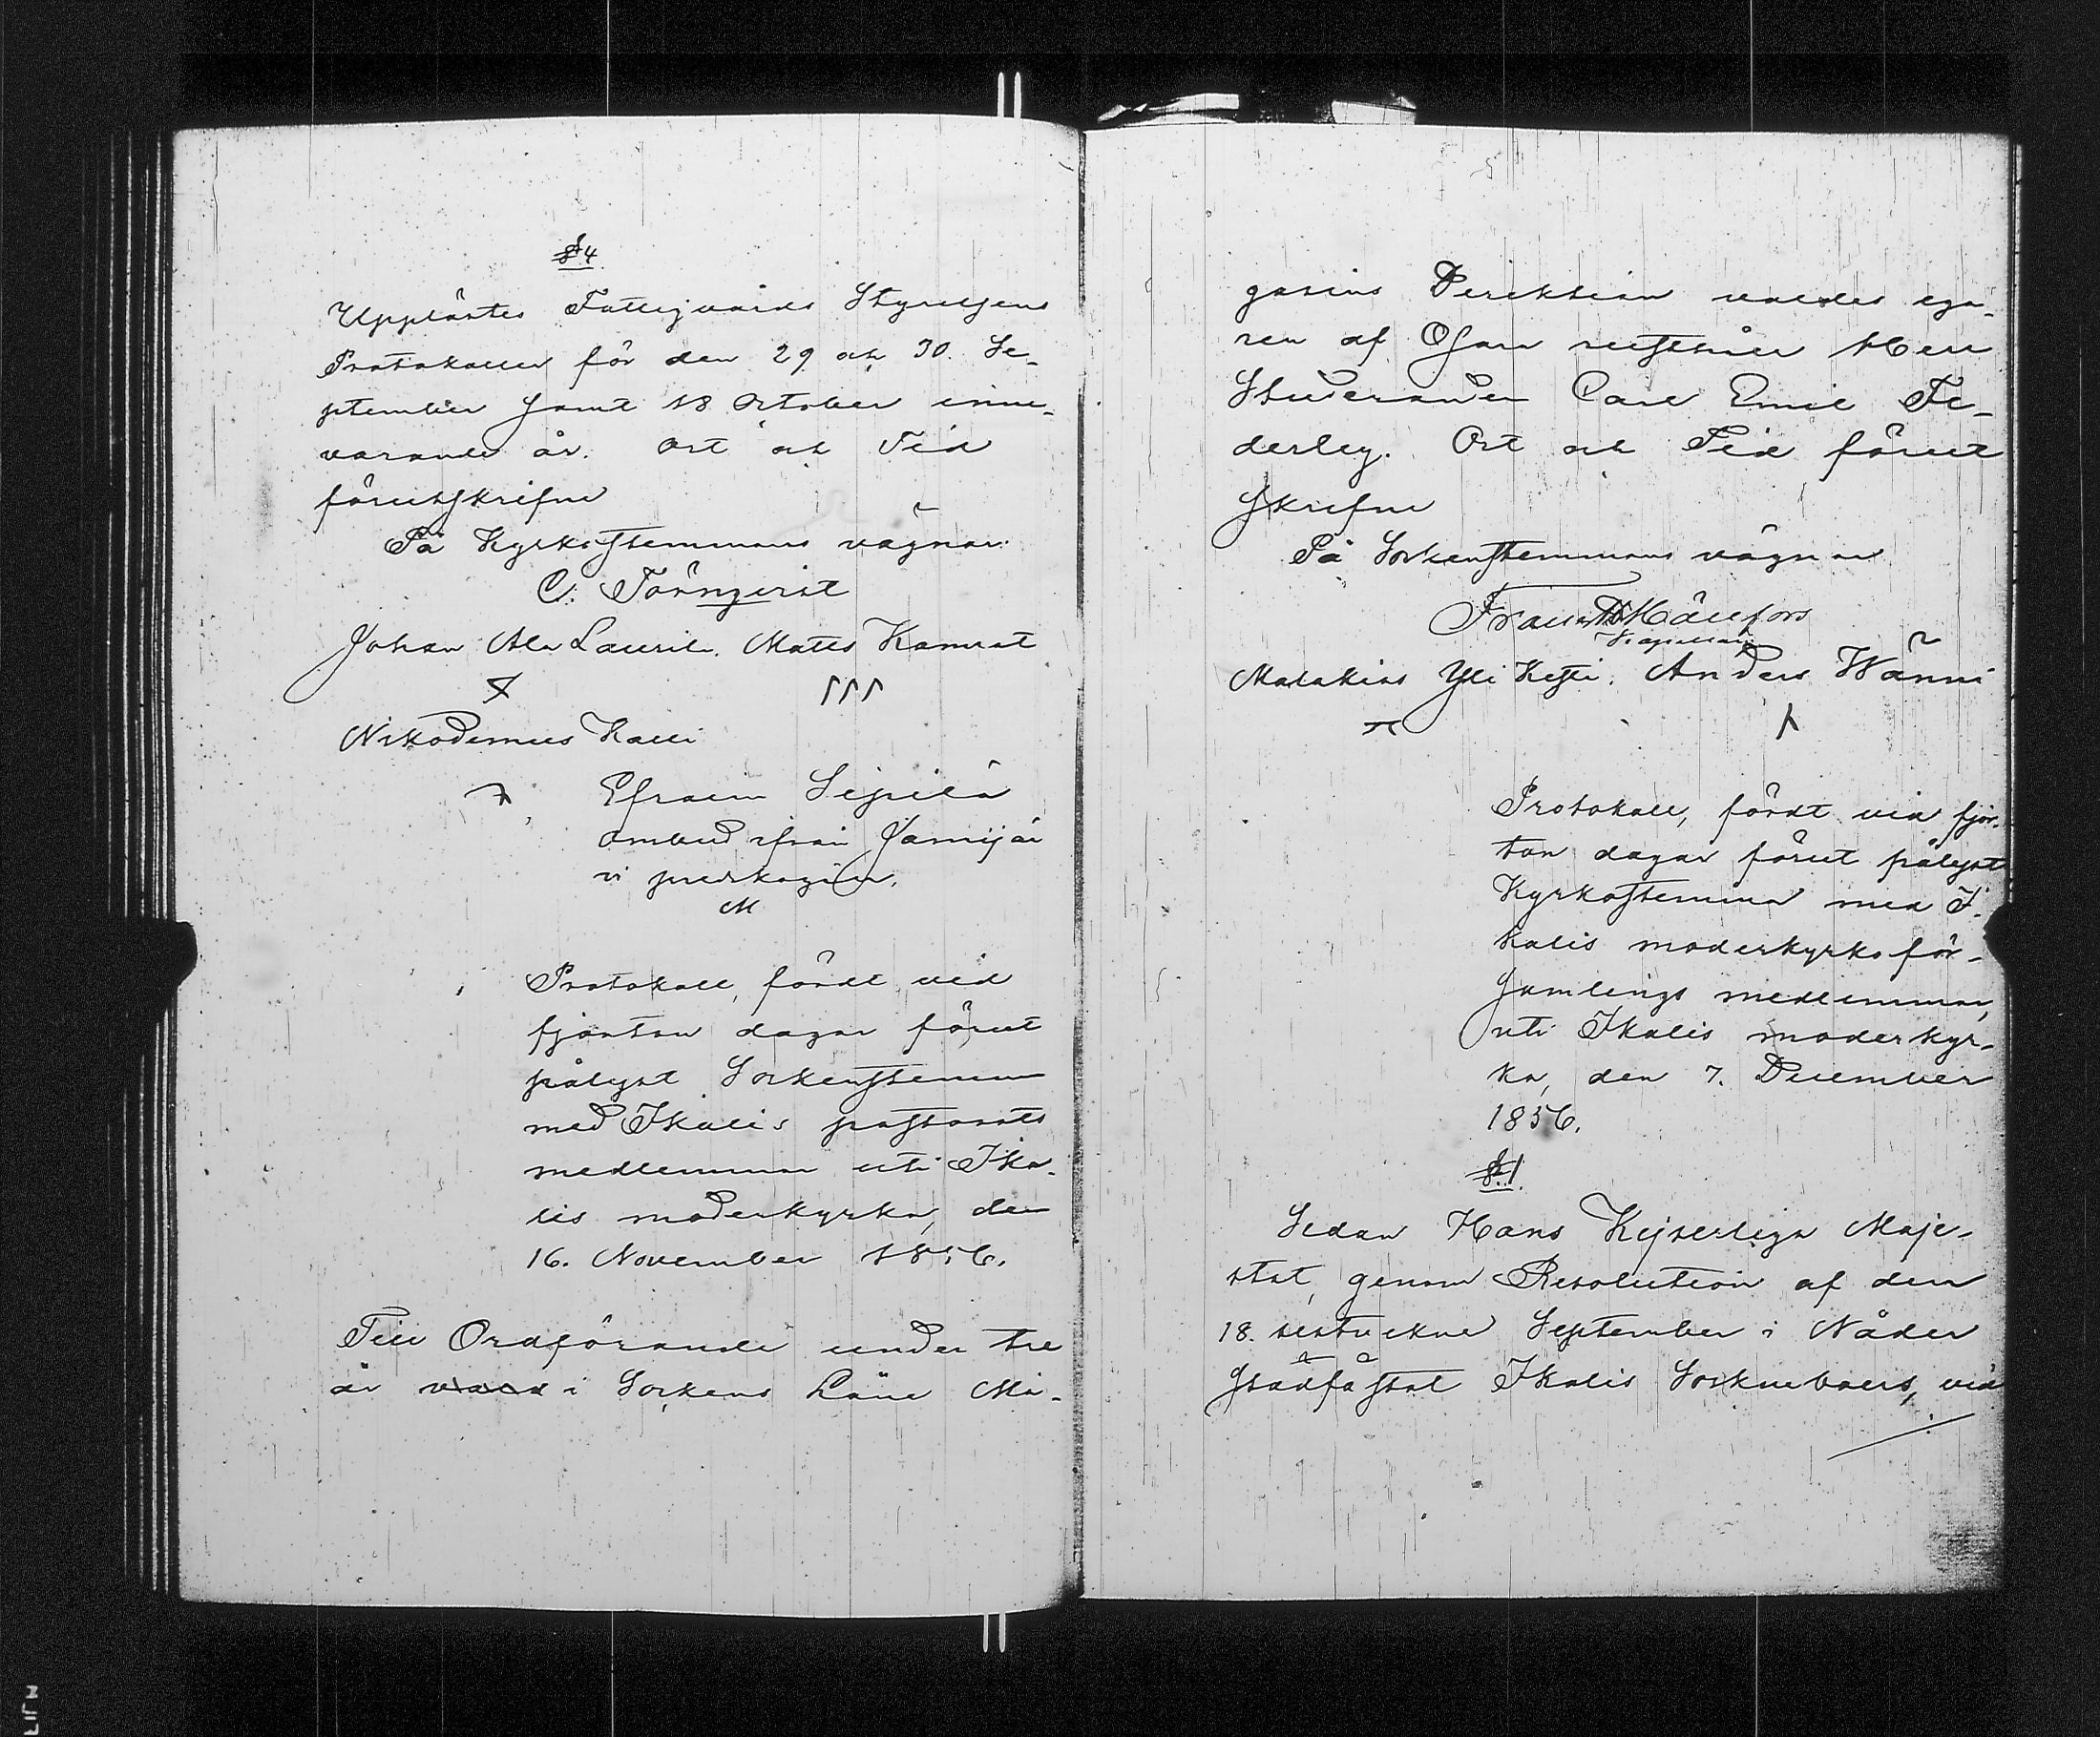 § 4.
Upplästes Fattigvårds Styrelsens
Protokoller för den 29 och 30. Se-
ptember samt 18 October inne-
varande år. Ort och Tid
förutskrifne
På Kyrkostemmans vägnar:
C. Törnqvist
Johan Ala Laurila. Matts Kamrat
Nikodemus Kalli
Efraim Sipilä
ombud ifrån Jämijär
vi predkogäll.
M
Protokoll, fördt vid
fjorton dagar förut
pålyst Sockenstemma
med Ikalis pastorats
medlemmar uti Ika-
lis moderkyrka, den
16. November 1856.
Till Ordförande under tre
år vald i Sockens Låne Ma-
gasins Direktion valdes ega-
ren af Osara rusthåll Herr
Studeranden Carl Emil Fe-
derley. Ort och Tid förut
skrifne
På Sockenstemmans vägnar
Frans Hällfors
Kapellan
Malakias Yli Kesti. Anders Wänni
Protokoll, fördt vid fjor-
ton dagar förut pålyst
Kyrkostemma med I-
kalis moderkyrkoför-
samlings medlemmar,
uti Ikalis moderkyr-
ka, den 7. December
1856.
§ 1.
Sedan Hans Kejserliga Maje-
stät, genom Resolution af den
18. sistvekne September i Nåder
stadfästat Ikalis Sockneboers, vid